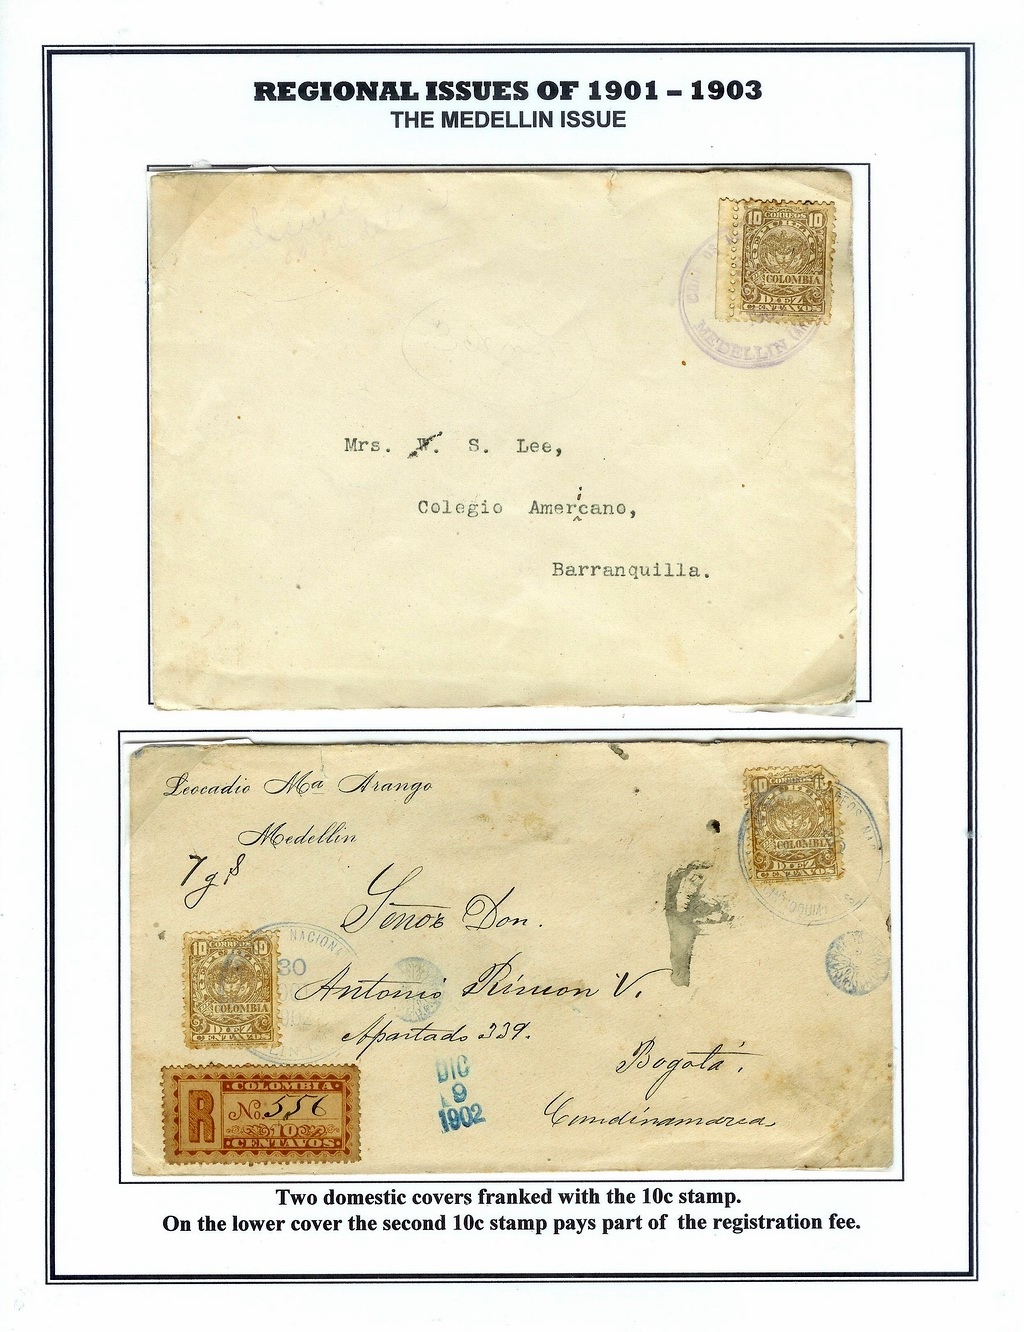 REGIONAL ISSUES OF 1901 – 1903
THE MEDELLIN ISSUE
10 CORREOS 10
COLOMBIA
DIEZ
CENTAVOS
MEDELLIN
Mrs. W. S. Lee,
Colegio Americano,
Barranquilla.
Leocadio Mª Arango
Medellin
7 g 8
10
COLOMBIA
DIEZ
CENTAVOS
Señor Don.
10 CORREOS 10
COLOMBIA
DIEZ
CENTAVOS
NACIONA
30
Antonio Rincon V.
Apartado 339.
Bogotá.
Cundinamarca
DIC
9
1902
COLOMBIA
R No. 556
10
CENTAVOS
Two domestic covers franked with the 10c stamp.
On the lower cover the second 10c stamp pays part of the registration fee.